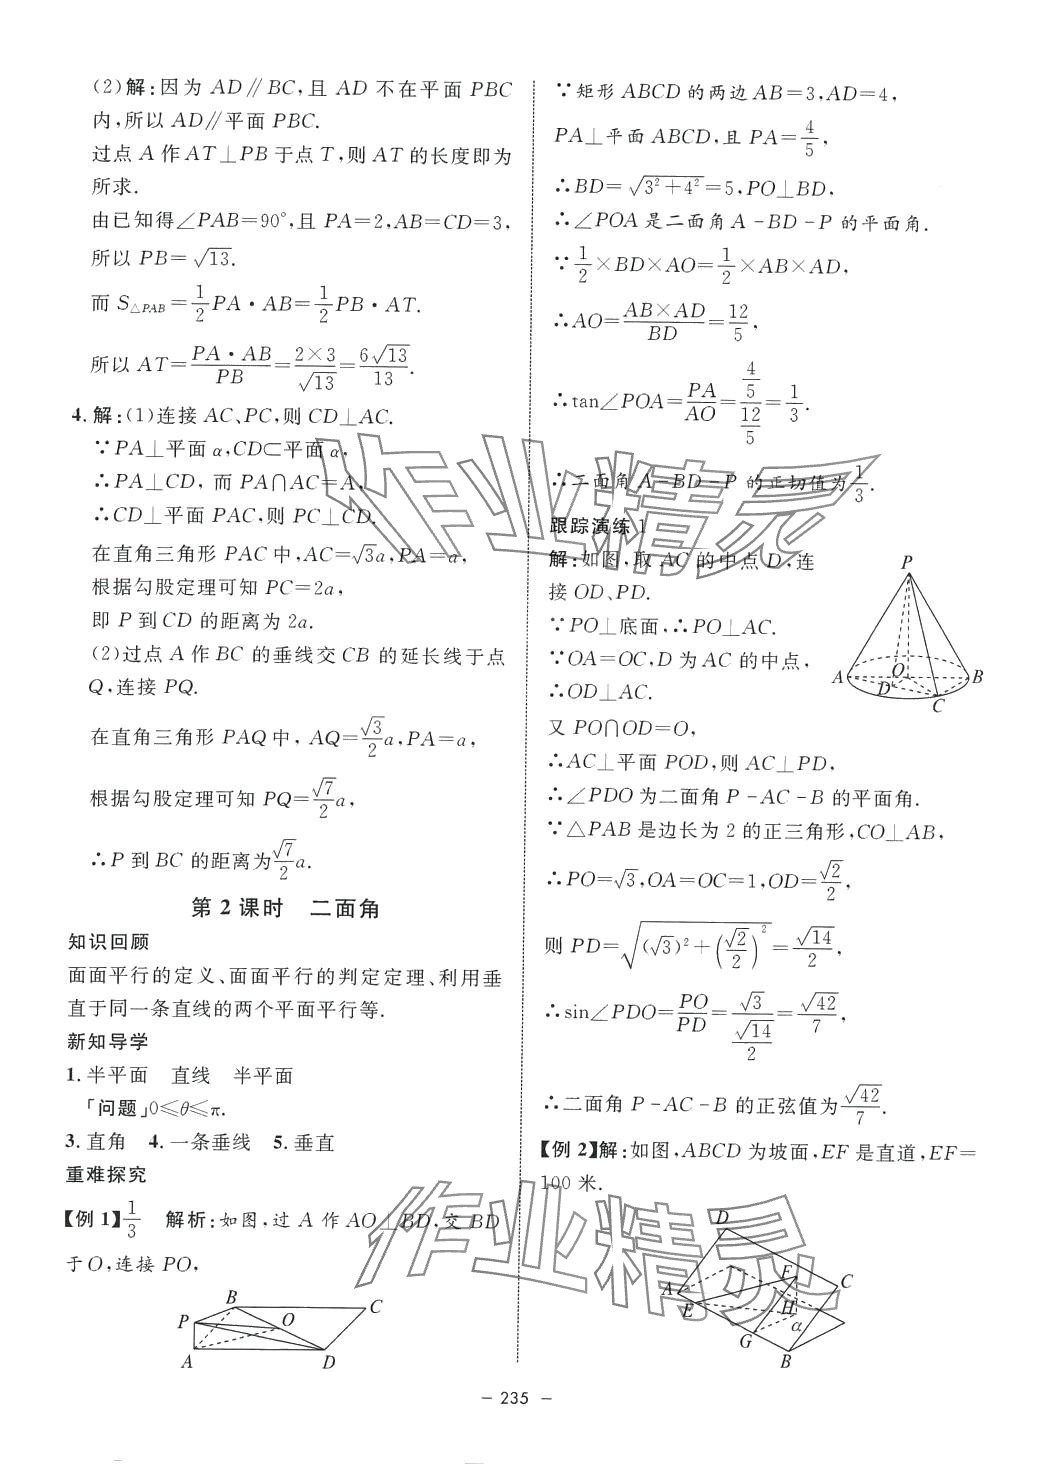 (2)解:因为 AD∥BC,且 AD 不在平面 PBC
内,所以 AD∥平面 PBC.
过点 A 作 AT⊥PB 于点 T,则 AT 的长度即为
所求.
由已知得∠PAB=90°,且 PA=2,AB=CD=3,
所以 PB=√13.
而 S△PAB=1/2 PA·AB=1/2 PB·AT.
所以 AT=PA·AB/PB=2×3/√13=6√13/13.
4.解:(1)连接 AC、PC,则 CD⊥AC.
∵PA⊥平面 α,CD⊂平面 α,
∴PA⊥CD,而 PA∩AC=A,
∴CD⊥平面 PAC,则 PC⊥CD.
在直角三角形 PAC 中,AC=√3a,PA=a,
根据勾股定理可知 PC=2a,
即 P 到 CD 的距离为 2a.
(2)过点 A 作 BC 的垂线交 CB 的延长线于点
Q,连接 PQ.
在直角三角形 PAQ 中,AQ=√3/2 a,PA=a,
根据勾股定理可知 PQ=√7/2 a,
∴P 到 BC 的距离为√7/2 a.
第 2 课时 二面角
知识回顾
面面平行的定义、面面平行的判定定理、利用垂
直于同一条直线的两个平面平行等.
新知导学
1.半平面 直线 半平面
「问题」0≤θ≤π.
3.直角 4.一条垂线 5.垂直
重难探究
【例 1】1/3 解析:如图,过 A 作 AO⊥BD,交 BD
于 O,连接 PO,
B
C
P
O
A
D
∵矩形 ABCD 的两边 AB=3,AD=4,
PA⊥平面 ABCD,且 PA=4/5,
∴BD=√(3²+4²)=5,PO⊥BD,
∴∠POA 是二面角 A-BD-P 的平面角.
∵1/2×BD×AO=1/2×AB×AD,
∴AO=AB×AD/BD=12/5,
∴tan∠POA=PA/AO=(4/5)/(12/5)=1/3.
∴二面角 A-BD-P 的正切值为1/3.
跟踪演练 1
解:如图,取 AC 的中点 D,连
接 OD、PD.
∵PO⊥底面,∴PO⊥AC.
∵OA=OC,D 为 AC 的中点,
∴OD⊥AC.
又 PO∩OD=O,
∴AC⊥平面 POD,则 AC⊥PD,
∴∠PDO 为二面角 P-AC-B 的平面角.
∵△PAB 是边长为 2 的正三角形,CO⊥AB,
∴PO=√3,OA=OC=1,OD=√2/2,
则 PD=√((√3)²+(√2/2)²)=√14/2,
∴sin∠PDO=PO/PD=√3/(√14/2)=√42/7,
∴二面角 P-AC-B 的正弦值为√42/7.
P
A
O
B
D
C
【例 2】解:如图,ABCD 为坡面,EF 是直道,EF=
100 米.
D
F
C
A
E
H
G
α
B
作业精灵
作业精灵
- 235 -